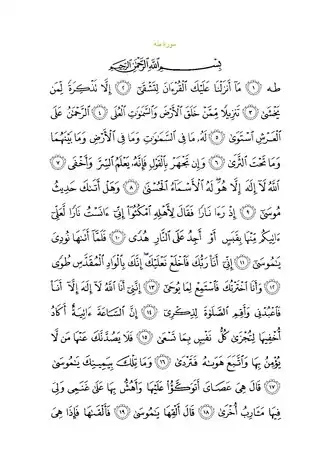 سورة طه
بِسْمِ اللَّهِ الرَّحْمَٰنِ الرَّحِيمِ
طه ۝١ مَا أَنزَلْنَا عَلَيْكَ الْقُرْءَانَ لِتَشْقَىٰ ۝٢ إِلَّا تَذْكِرَةً لِّمَن
يَخْشَىٰ ۝٣ تَنزِيلًا مِّمَّنْ خَلَقَ الْأَرْضَ وَالسَّمَٰوَٰتِ الْعُلَى ۝٤ الرَّحْمَٰنُ عَلَى
الْعَرْشِ اسْتَوَىٰ ۝٥ لَهُۥ مَا فِي السَّمَٰوَٰتِ وَمَا فِي الْأَرْضِ وَمَا بَيْنَهُمَا
وَمَا تَحْتَ الثَّرَىٰ ۝٦ وَإِن تَجْهَرْ بِالْقَوْلِ فَإِنَّهُۥ يَعْلَمُ السِّرَّ وَأَخْفَى ۝٧
اللَّهُ لَا إِلَٰهَ إِلَّا هُوَ لَهُ الْأَسْمَاءُ الْحُسْنَىٰ ۝٨ وَهَلْ أَتَىٰكَ حَدِيثُ
مُوسَىٰ ۝٩ إِذْ رَءَا نَارًا فَقَالَ لِأَهْلِهِ امْكُثُوٓا إِنِّيٓ ءَانَسْتُ نَارًا لَّعَلِّيٓ
ءَاتِيكُم مِّنْهَا بِقَبَسٍ أَوْ أَجِدُ عَلَى النَّارِ هُدًى ۝١٠ فَلَمَّآ أَتَىٰهَا نُودِيَ
يَٰمُوسَىٰٓ ۝١١ إِنِّيٓ أَنَا رَبُّكَ فَاخْلَعْ نَعْلَيْكَ إِنَّكَ بِالْوَادِ الْمُقَدَّسِ طُوًى
۝١٢ وَأَنَا اخْتَرْتُكَ فَاسْتَمِعْ لِمَا يُوحَىٰٓ ۝١٣ إِنَّنِيٓ أَنَا اللَّهُ لَآ إِلَٰهَ إِلَّآ أَنَا۠
فَاعْبُدْنِي وَأَقِمِ الصَّلَوٰةَ لِذِكْرِيٓ ۝١٤ إِنَّ السَّاعَةَ ءَاتِيَةٌ أَكَادُ
أُخْفِيهَا لِتُجْزَىٰ كُلُّ نَفْسٍۭ بِمَا تَسْعَىٰ ۝١٥ فَلَا يَصُدَّنَّكَ عَنْهَا مَن لَّا
يُؤْمِنُ بِهَا وَاتَّبَعَ هَوَىٰهُ فَتَرْدَىٰ ۝١٦ وَمَا تِلْكَ بِيَمِينِكَ يَٰمُوسَىٰ
۝١٧ قَالَ هِيَ عَصَايَ أَتَوَكَّؤُا عَلَيْهَا وَأَهُشُّ بِهَا عَلَىٰ غَنَمِي وَلِيَ
فِيهَا مَـَٔارِبُ أُخْرَىٰ ۝١٨ قَالَ أَلْقِهَا يَٰمُوسَىٰ ۝١٩ فَأَلْقَىٰهَا فَإِذَا هِيَ